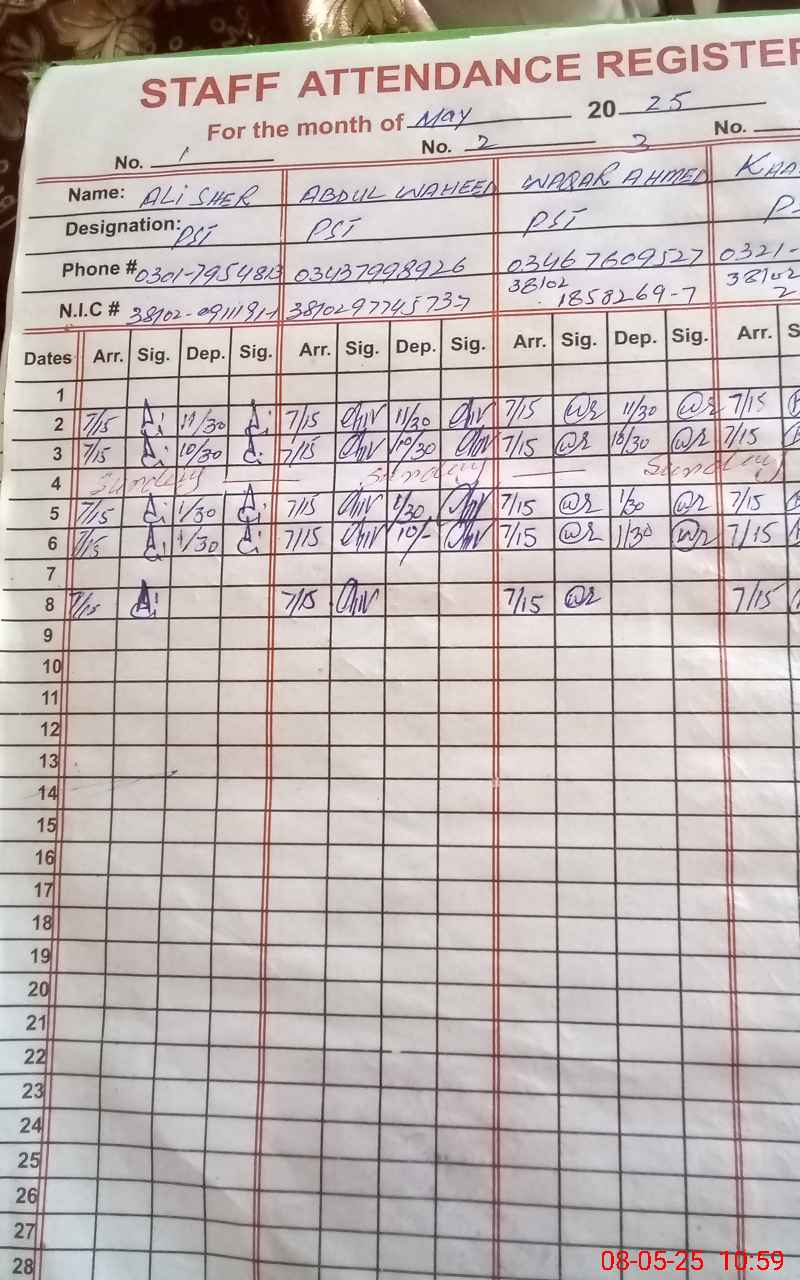 STAFF ATTENDANCE REGISTER
For the month of May 20 25
No. 1 No. 2 3 No.
Name: ALI SHER ABDUL WAHEED WAQAR AHMED KHA
Designation: PST PST PST P
Phone # 0301-7954813 03437998926 03467609527 0321-
N.I.C # 38102-0911191-1 3810297745737 38102 1858269-7 38102 2
Dates Arr. Sig. Dep. Sig. Arr. Sig. Dep. Sig. Arr. Sig. Dep. Sig. Arr. S
1
2 7/15 11/30 7/15 11/30 7/15 11/30 7/15
3 7/15 10/30 7/15 10/30 7/15 10/30 7/15
4 Sunday Sunday Sunday
5 7/15 1/30 7/15 1/30 7/15 1/30 7/15
6 7/15 1/30 7/15 10/- 7/15 1/30 7/15
7
8 7/15 7/15 7/15 7/15
9
10
11
12
13
14
15
16
17
18
19
20
21
22
23
24
25
26
27
28
08-05-25 10:59